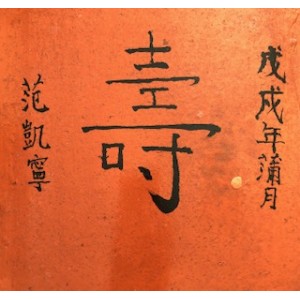 戊戌年蒲月
壽
范凱寧